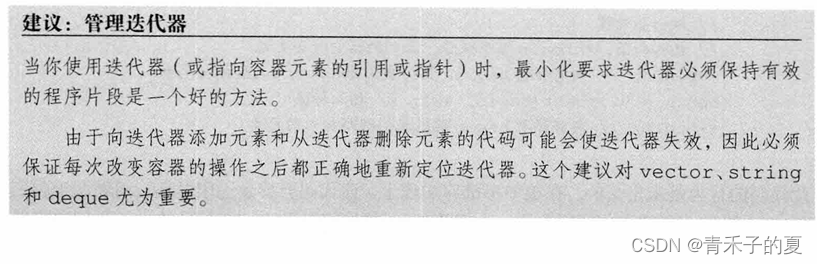 建议：管理迭代器
当你使用迭代器（或指向容器元素的引用或指针）时，最小化要求迭代器必须保持有效
的程序片段是一个好的方法。
由于向迭代器添加元素和从迭代器删除元素的代码可能会使迭代器失效，因此必须
保证每次改变容器的操作之后都正确地重新定位迭代器。这个建议对 vector、string
和 deque 尤为重要。
CSDN @青禾子的夏